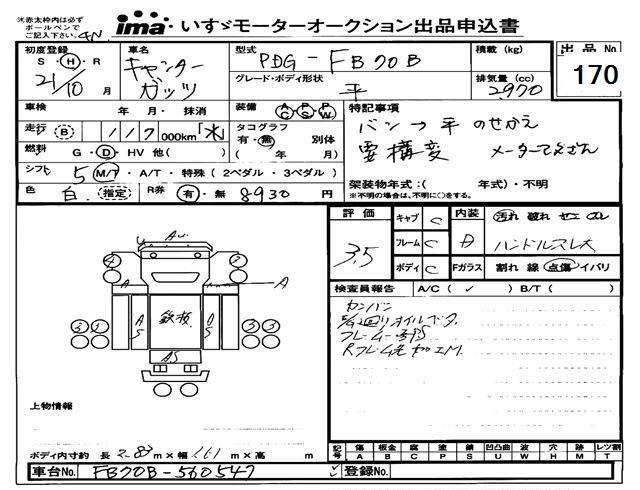 ※赤太枠内は必ず
ボールペンで
ご記入下さい。
ima いすゞモーターオークション出品申込書
出品No
170
初度登録
S・H・R
21/10 月
車名
キャンター
ガッツ
型式 PDG-FB70B
グレード・ボディ形状
平
積載(kg)
排気量(cc)
2970
車検 年・月・抹消
装備 AC PS PW
特記事項
バン→平 のせかえ
要構変
走行 B 117 000km
タコグラフ
有・無 別体
( 年 月)
燃料 G・D・HV 他( )
シフト 5 M/T・A/T・特殊(2ペダル・3ペダル)
架装物年式:( 年式)・不明
※不明の場合は、不明に○をする。
色 白 指定 R券 有・無 8930 円
評価
3.5
キャブ C
フレーム C
ボディ C
内装 汚れ 破れ
D ハンドルスレ大
Fガラス 割れ 線 点傷 イバリ
検査員報告 A/C( ✓ ) B/T( )
カンバン
鉄板
上物情報
ボディ内寸約 長 2.83 m×幅 1.61 m×高 m
記号 傷 A 板金 B 腐 C 塗 P 錆 S 凹凸曲 U 波 W 穴 H 跡 M レツ割 T
車台No. FB70B-560547
登録No.